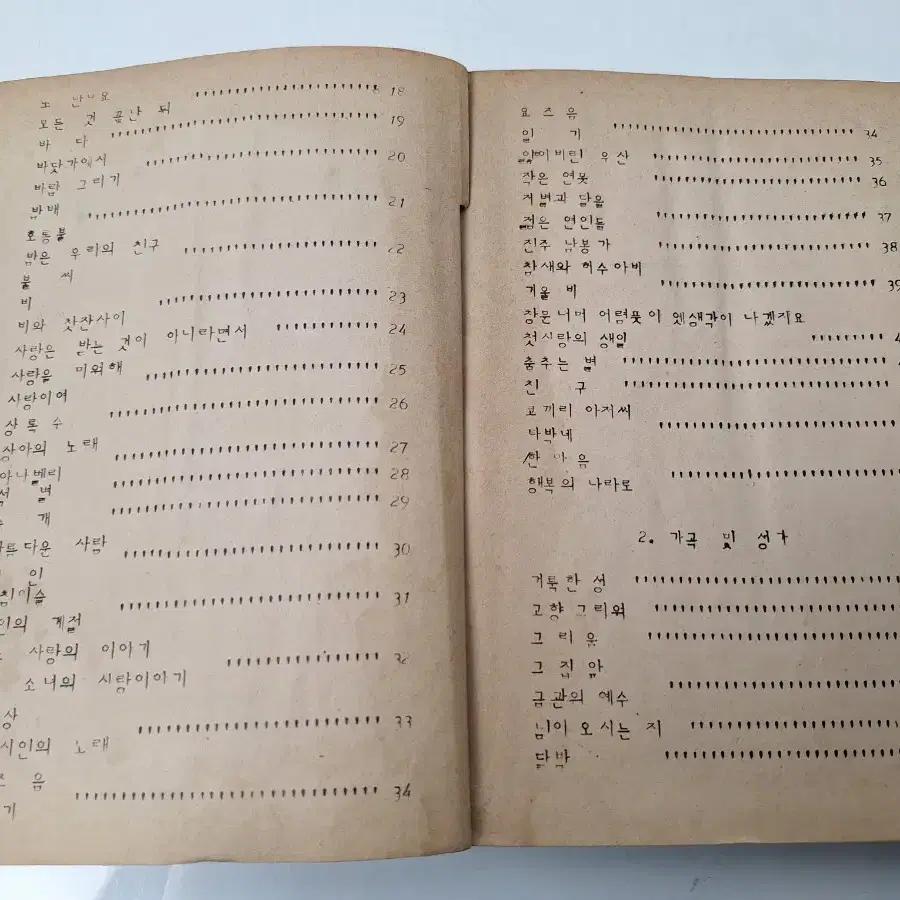 또 만나요 18
모든 것 끝난 뒤
바 다 19
바닷가에서 20
바람 그리기
밤배 21
호롱불
밤은 우리의 친구 22
불 씨
비 23
비와 찻잔사이
사랑은 받는 것이 아니라면서 24
사랑을 미워해 25
사랑이여
상록수 26
상아의 노래 27
아나벨리 28
별 29
개
다운 사람 30
인
침이슬 31
인의 계절
사랑의 이야기 32
소녀의 사랑이야기
상 33
시인의 노래
즈 음 34
기
요즈음
일 기 34
잃어버린 우산 35
작은 연못 36
저별과 달을
젊은 연인들 37
진주 남봉가 38
참새와 허수아비
겨울 비 39
창문너머 어렴풋이 옛생각이 나겠지요
첫사랑의 생일 4
춤추는 별
친 구
코끼리 아저씨
타박네
한마음
행복의 나라로
2. 가곡 및 성가
거룩한 성
고향 그리워
그리움
그 집 앞
금관의 예수
님이 오시는 지
달밤